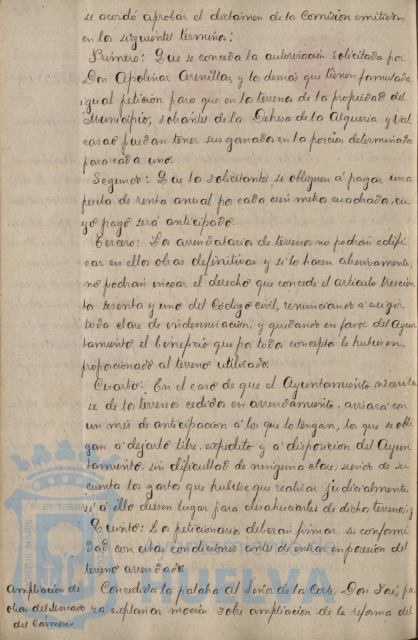 se acordó aprobar el dictamen de la Comisión emitido
en los siguientes términos:
Primero: Que se conceda la autorización solicitada por
Don Apolinar Arenillas, y los demás que tienen formulada
igual petición para que en los terrenos de la propiedad del
Municipio, sobrantes de la Dehesa de la Alquería y Val
casao puedan tener sus ganados en la porción determinada
para cada uno.
Segundo: Que los solicitantes se obliguen a pagar una
peseta de renta anual por cada cien metros cuadrados, cu
yo pago será anticipado.
Tercero: Los arrendatarios de terrenos no podrán edifi
car en ellos obras definitivas y si lo hacen abusivamente,
no podrán invocar el derecho que concede el artículo trescien
tos sesenta y uno del Código civil, renunciando a exigir
toda clase de indemnización, y quedando en favor del Ayun
tamiento el beneficio que por todos conceptos le hubiesen
proporcionado al terreno utilizado.
Cuarto: En el caso de que el Ayuntamiento necesita
se de los terrenos cedidos en arrendamiento, avisará con
un mes de anticipación a los que lo tengan, los que se obli
gan a dejarlos libre, expedito y a disposición del Ayun
tamiento, sin dificultad de ninguna clase, siendo de su
cuenta los gastos que hubiese que realizar judicialmente
si a ello diesen lugar para desahuciarles de dichos terrenos; y
Quinto: Los peticionarios deberán firmar su conformi
dad con estas condiciones antes de entrar en posesión del
terreno arrendado.
Ampliación de
obras del Mercado
del Carmen.
Concedida la palabra al Señor de la Corte, Don José, pa
ra explanar moción sobre ampliación de la reforma del
HUELVA